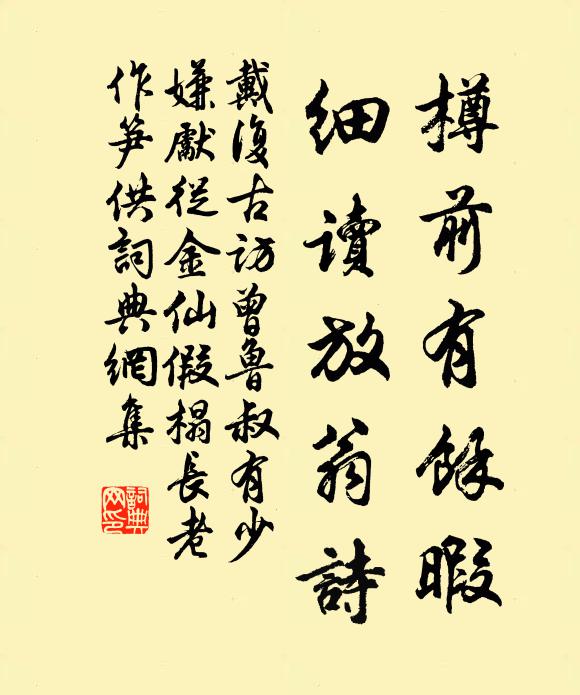 樽前有餘暇
細讀放翁詩
戴復古訪曾魯叔有少
嫌獻從金仙假榻長老
作笋供詞典網集
詞典
网印